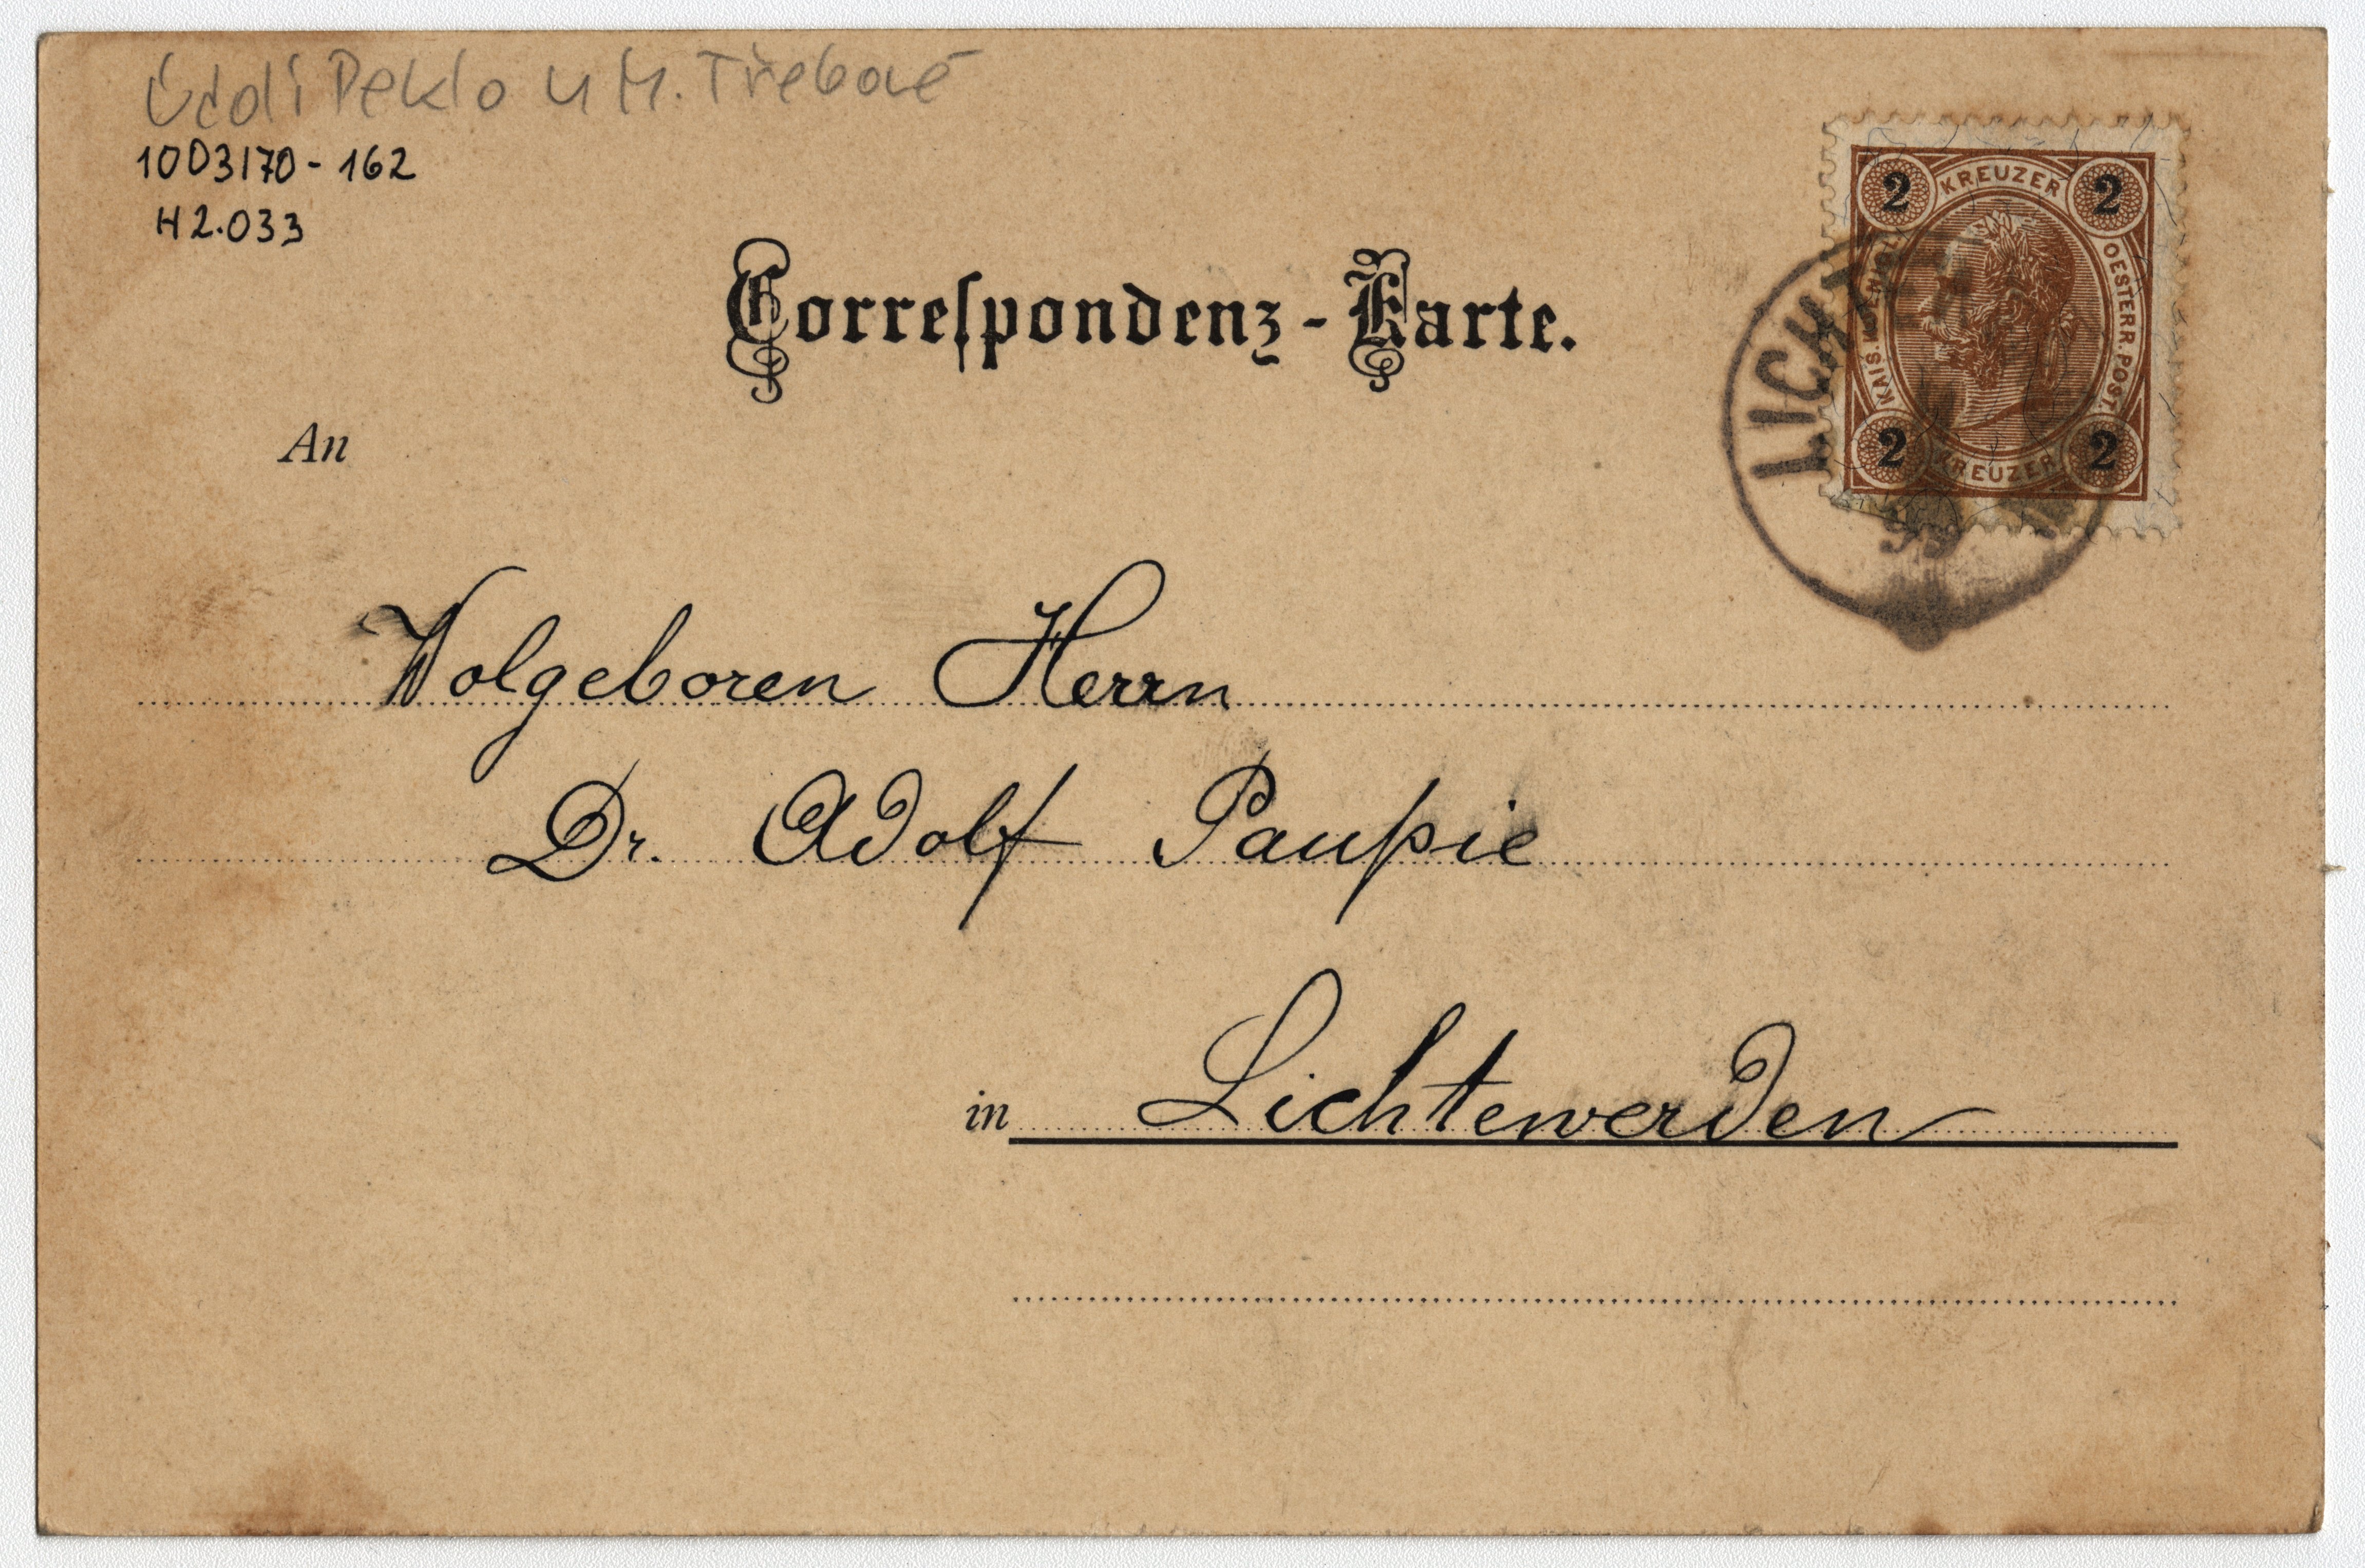 Údolí Peklo u M. Třebové
1003170-162
H2.033
Correspondenz-Karte.
2 KREUZER 2
KAIS. KOENIGL. OESTERR. POST.
2 KREUZER 2
LICHTEN
99
An
Wolgeboren Herrn
Dr. Adolf Paupie
in Lichtewerden